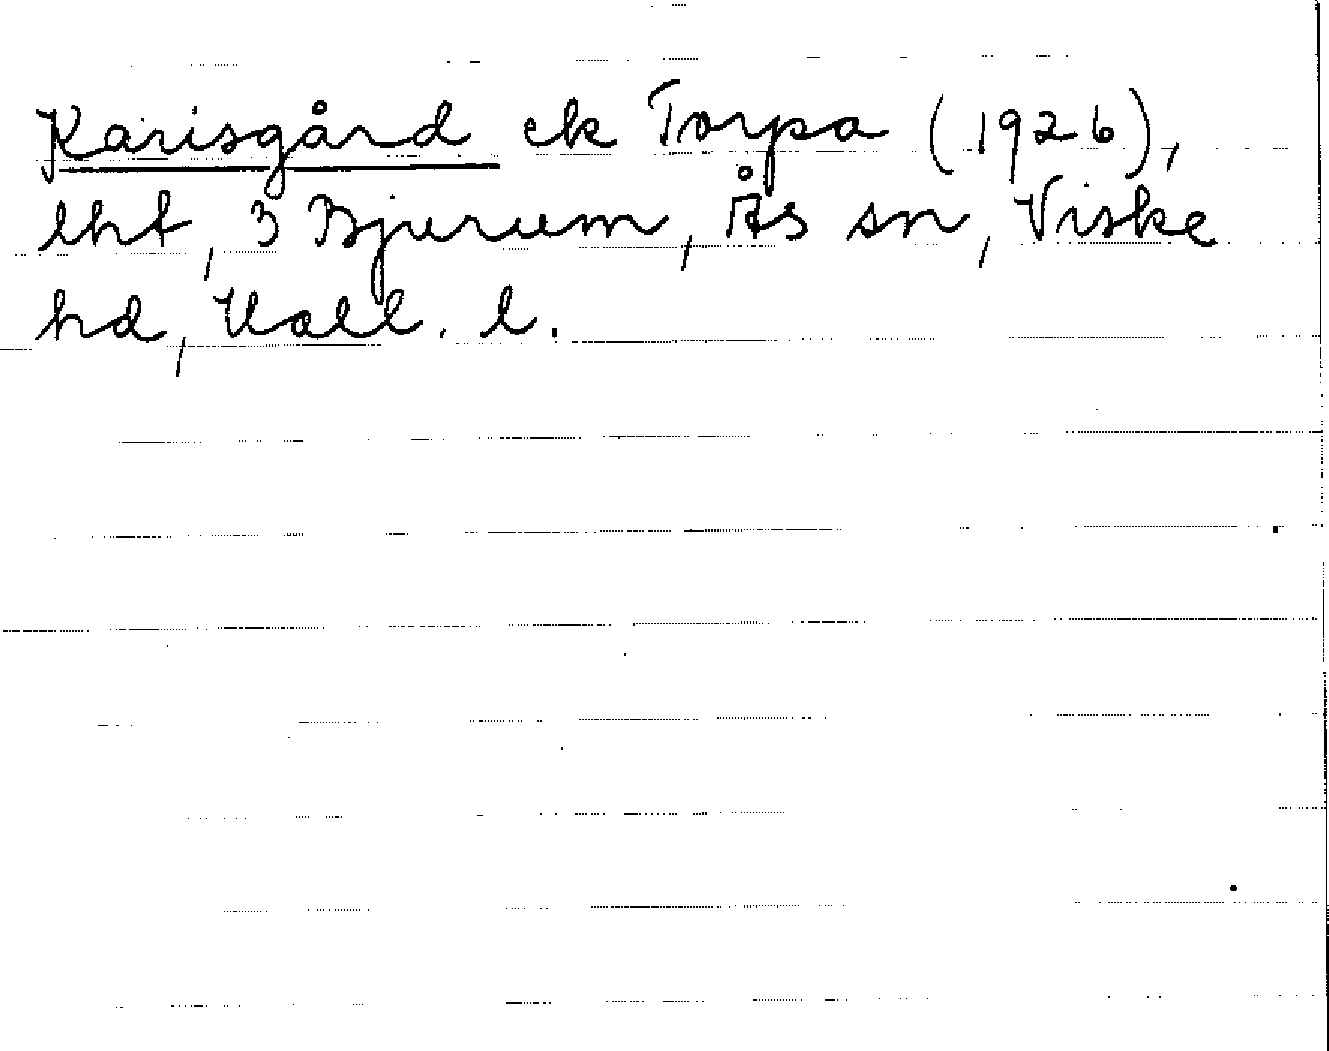 Karisgård ek Torpa (1926),
lht, 3 Bjurum, Ås sn, Viske
hd, Hall. l.